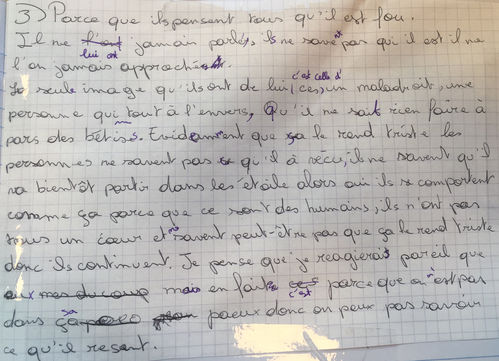 3) Parce que ils pensent tous qu'il est fou.
Il ne lui ont jamais parlés, ils ne savent pas qui il est il ne
l'on jamais approché.
La seule image qu'ils ont de lui, c'est celle d'un maladroit, une
personne qui tout à l'envers, Qu'il ne sait rien faire à
pars des bêtises. Evidement que ça le rend triste les
personnes ne savent pas qu'il à vécu, il ne savent qu'il
va bientôt partir dans les étoile alors oui ils se comportent
comme ça parce que ce sont des humains, ils n'ont pas
tous un cœur et ne savent peut-être pas que ça le rend triste
donc ils continuent. Je pense que je reagierais pareil que
eux mais en faite c'est parce que on est pas
dans sa peaux donc on peux pas savoir
ce qu'il resent.